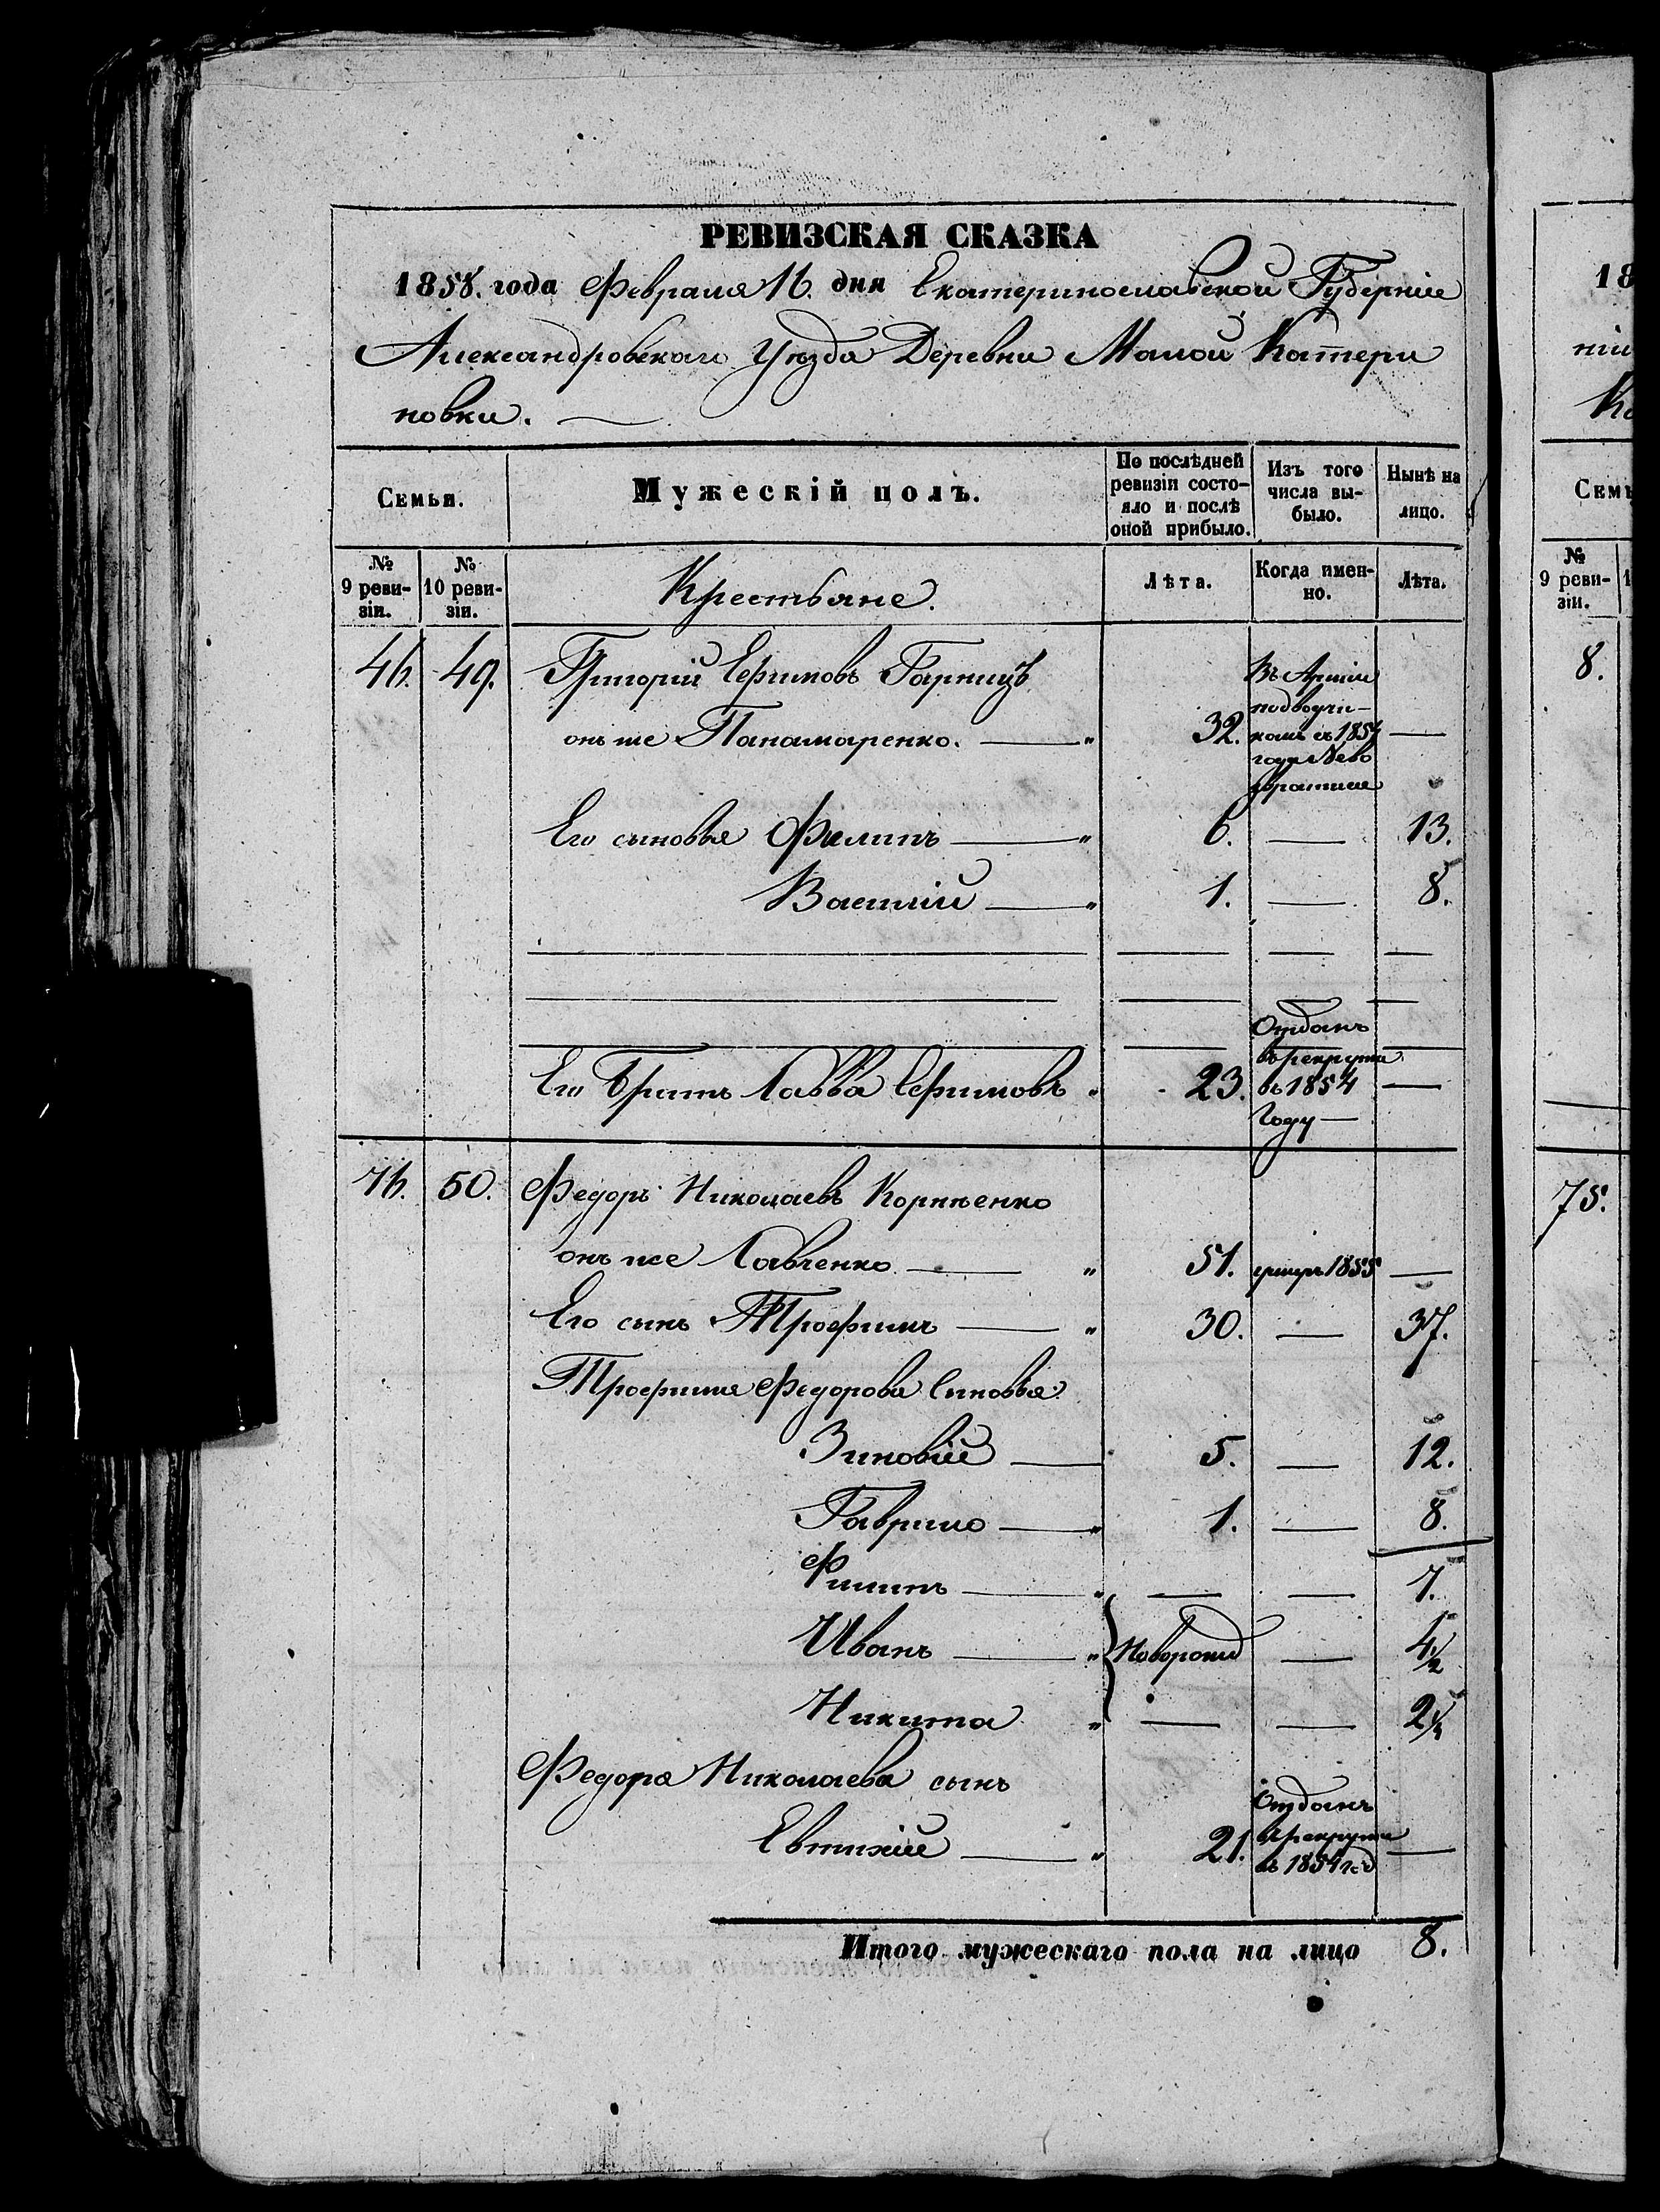 РЕВИЗСКАЯ СКАЗКА
1858. года Февраля 16. дня Екатеринославской Губерніи
Александровскаго Уѣзда Деревни Малой Катери
новки.
Семьи.
Мужескій полъ.
По послѣдней ревизіи состояло и послѣ оной прибыло.
Изъ того числа выбыло.
Нынѣ на лицо.
№ 9 ревизіи.
№ 10 ревизіи.
Крестьяне.
Лѣта.
Когда именно.
Лѣта.
46. 49. Григорій Ефимовъ
онъ же Панамаренко. — " 32. Въ Арміи
подводчи-
комъ съ 1854
года Нево
звратился —
Его сыновья Филипъ — " 6. — 13.
Василій — " 1. — 8.
Его Братъ Савва Ефимовъ " 23. Отданъ
въ рекруты
въ 1854
Году — —
76. 50. Федоръ Николаевъ Корнѣенко
онъ же Савченко — " 51. умеръ 1855 —
Его сынъ Трофимъ — " 30. — 37.
Трофима Федорова Сыновья
Зиновій — 5. — 12.
Гаврило — " 1. — 8.
Филипъ — " — — 7.
Иванъ — " Новорожд — 4 1/2
Никита " — — 2 1/2
Федора Николаева сынъ
Евтихій — " 21. Отданъ
въ рекруты
въ 1854 год —
Итого мужескаго пола на лицо 8.
18
ніи
Ка
Семь
№ 9 ревизіи.
1
8.
75.